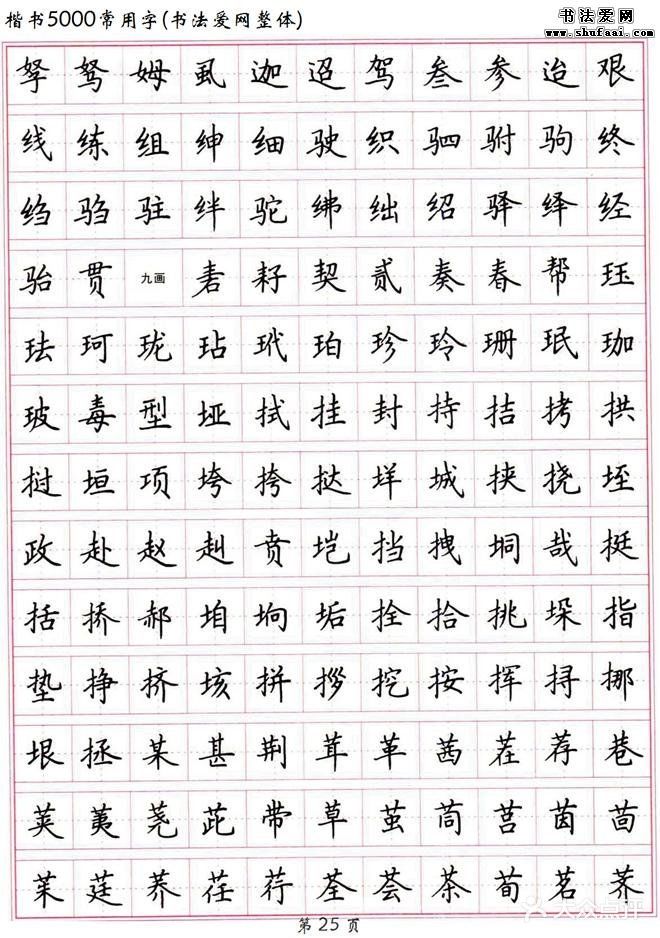 楷书5000常用字(书法爱网整体)
书法爱网
www.shufaai.com
孥 驽 姆 虱 迦 迢 驾 叁 参 迨 艰
线 练 组 绅 细 驶 织 驷 驸 驹 终
绉 驺 驻 绊 驼 绋 绌 绍 驿 绎 经
骀 贯 九画 砉 耔 契 贰 奏 春 帮 珏
珐 珂 珑 玷 玳 珀 珍 玲 珊 珉 珈
玻 毒 型 垭 拭 挂 封 持 拮 拷 拱
挝 垣 项 垮 挎 挞 垟 城 挟 挠 垤
政 赴 赵 赳 贲 垲 挡 拽 垌 哉 挺
括 挢 郝 垍 垧 垢 拴 拾 挑 垛 指
垫 挣 挤 垓 拼 拶 挖 按 挥 挦 挪
垠 拯 某 甚 荆 茸 革 茜 茬 荐 巷
荚 荑 荛 茈 带 草 茧 茼 莒 茵 茴
茱 莛 荞 茯 荇 荃 荟 茶 荀 茗 荠
第 25 页
大众点评